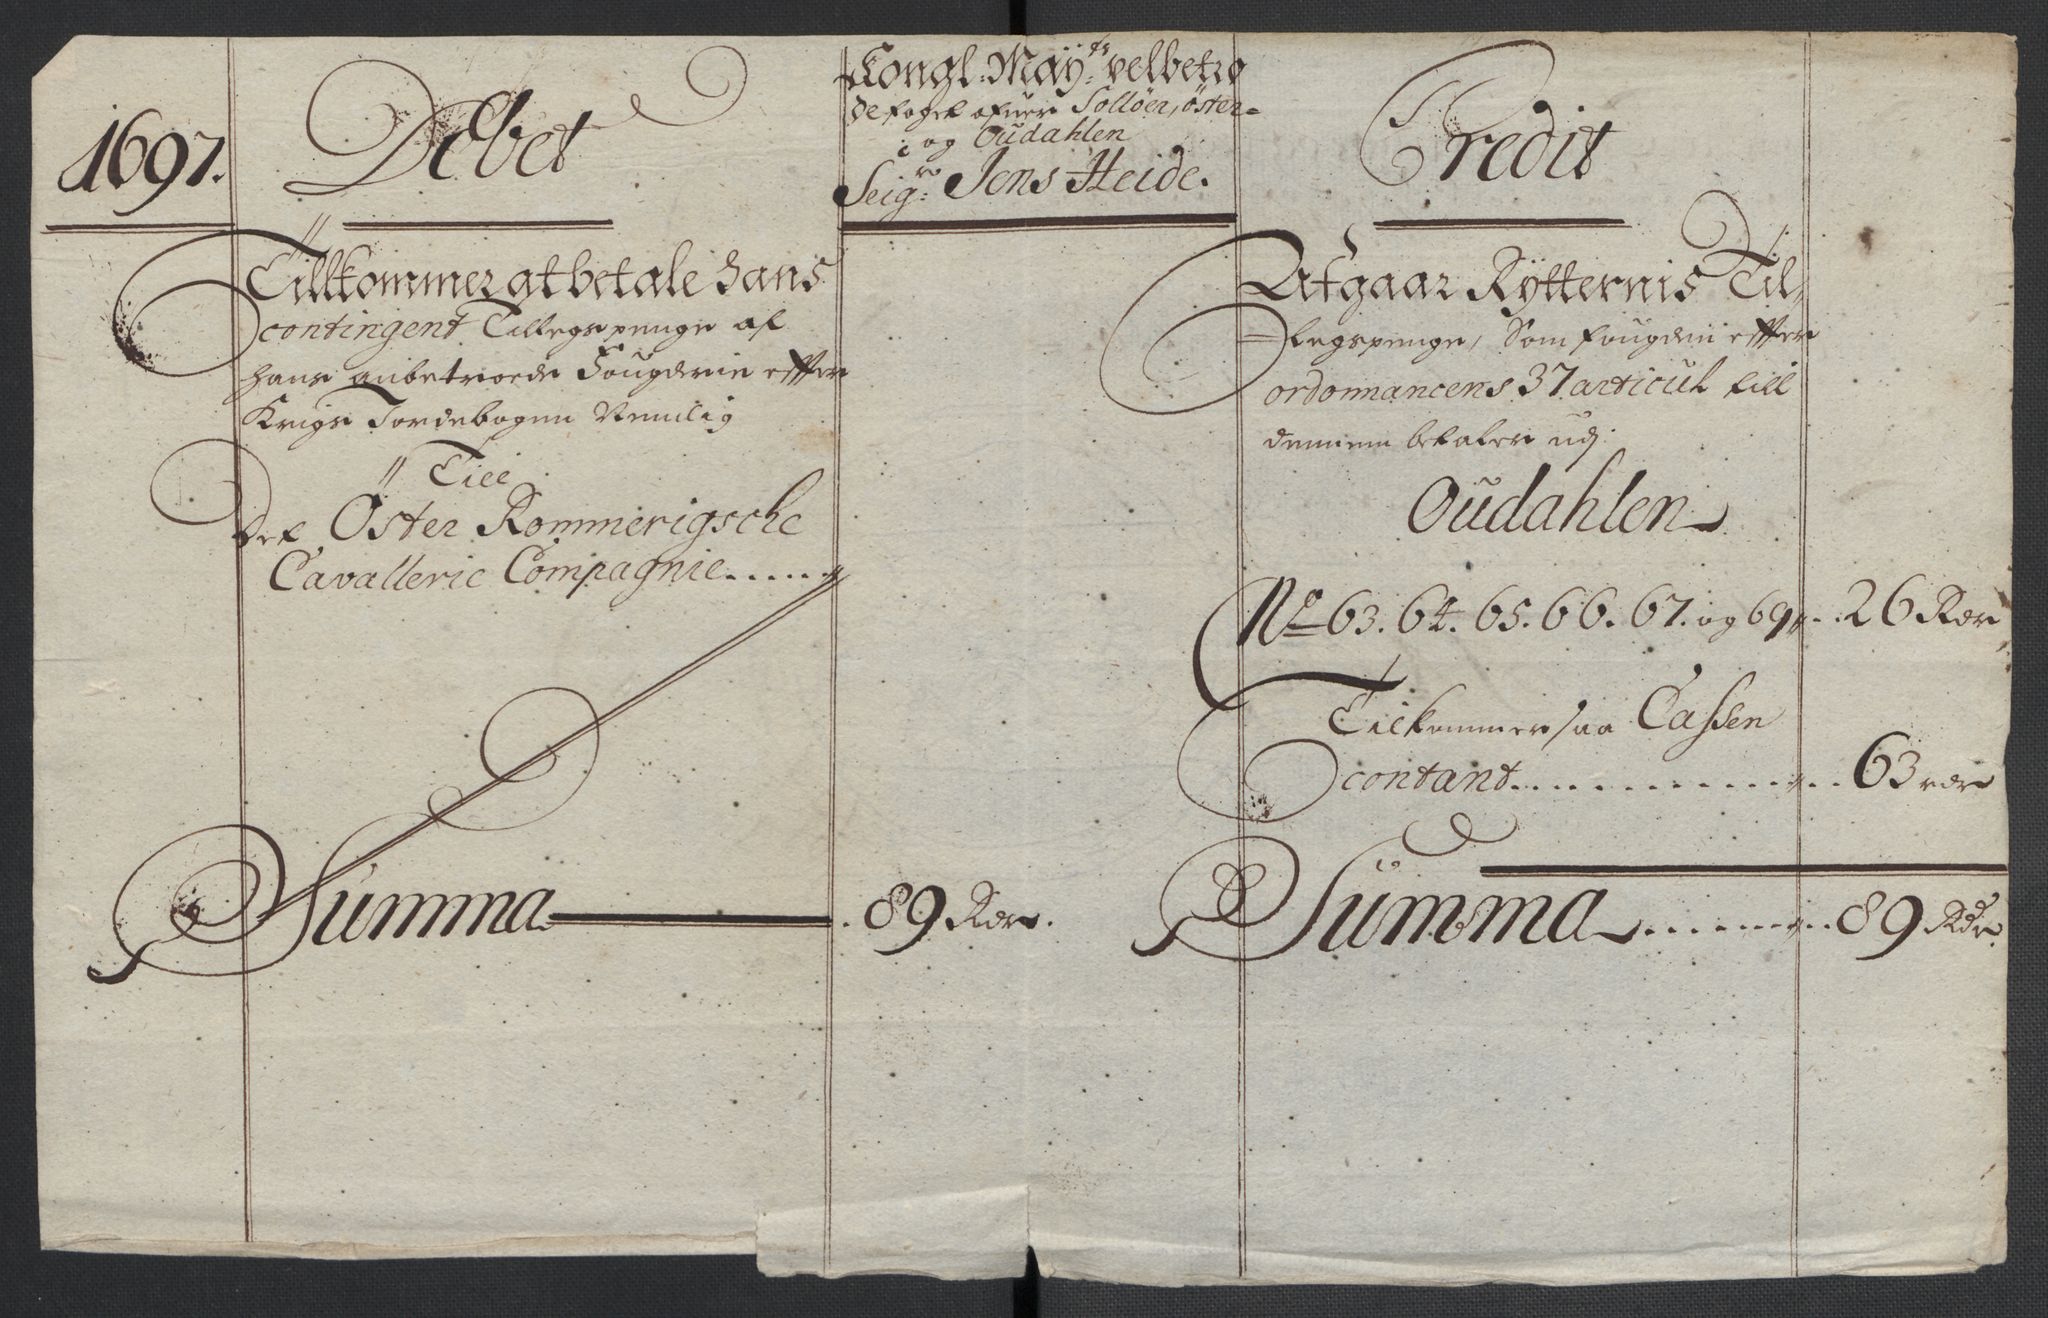 1697.
Debet
Kongl: Maÿ:ts velbetro
de foget ofuer Solløer, öster-
og Oudahlen
Seig:r Jens Heide.
Credit
Tillkommer at betale hans
contingent Tillegspenge af
hans anbetroede Fougderie effter
Krigs Jordebogen Nemlig
Till
Det Öster Rommerigsche
Cavallerie Compagnie
Summa 89 Rdr.
Afgaar Rÿtternis Til-
legspenge, Som fougden effter
ordonnancens 37 articul till
dennem betaler udj
Oudahlen
No 63. 64. 65. 66. 67. og 69 26 Rdr
Tilkommer saa Cassen
contant 63 rdr
Summa 89 Rdr.